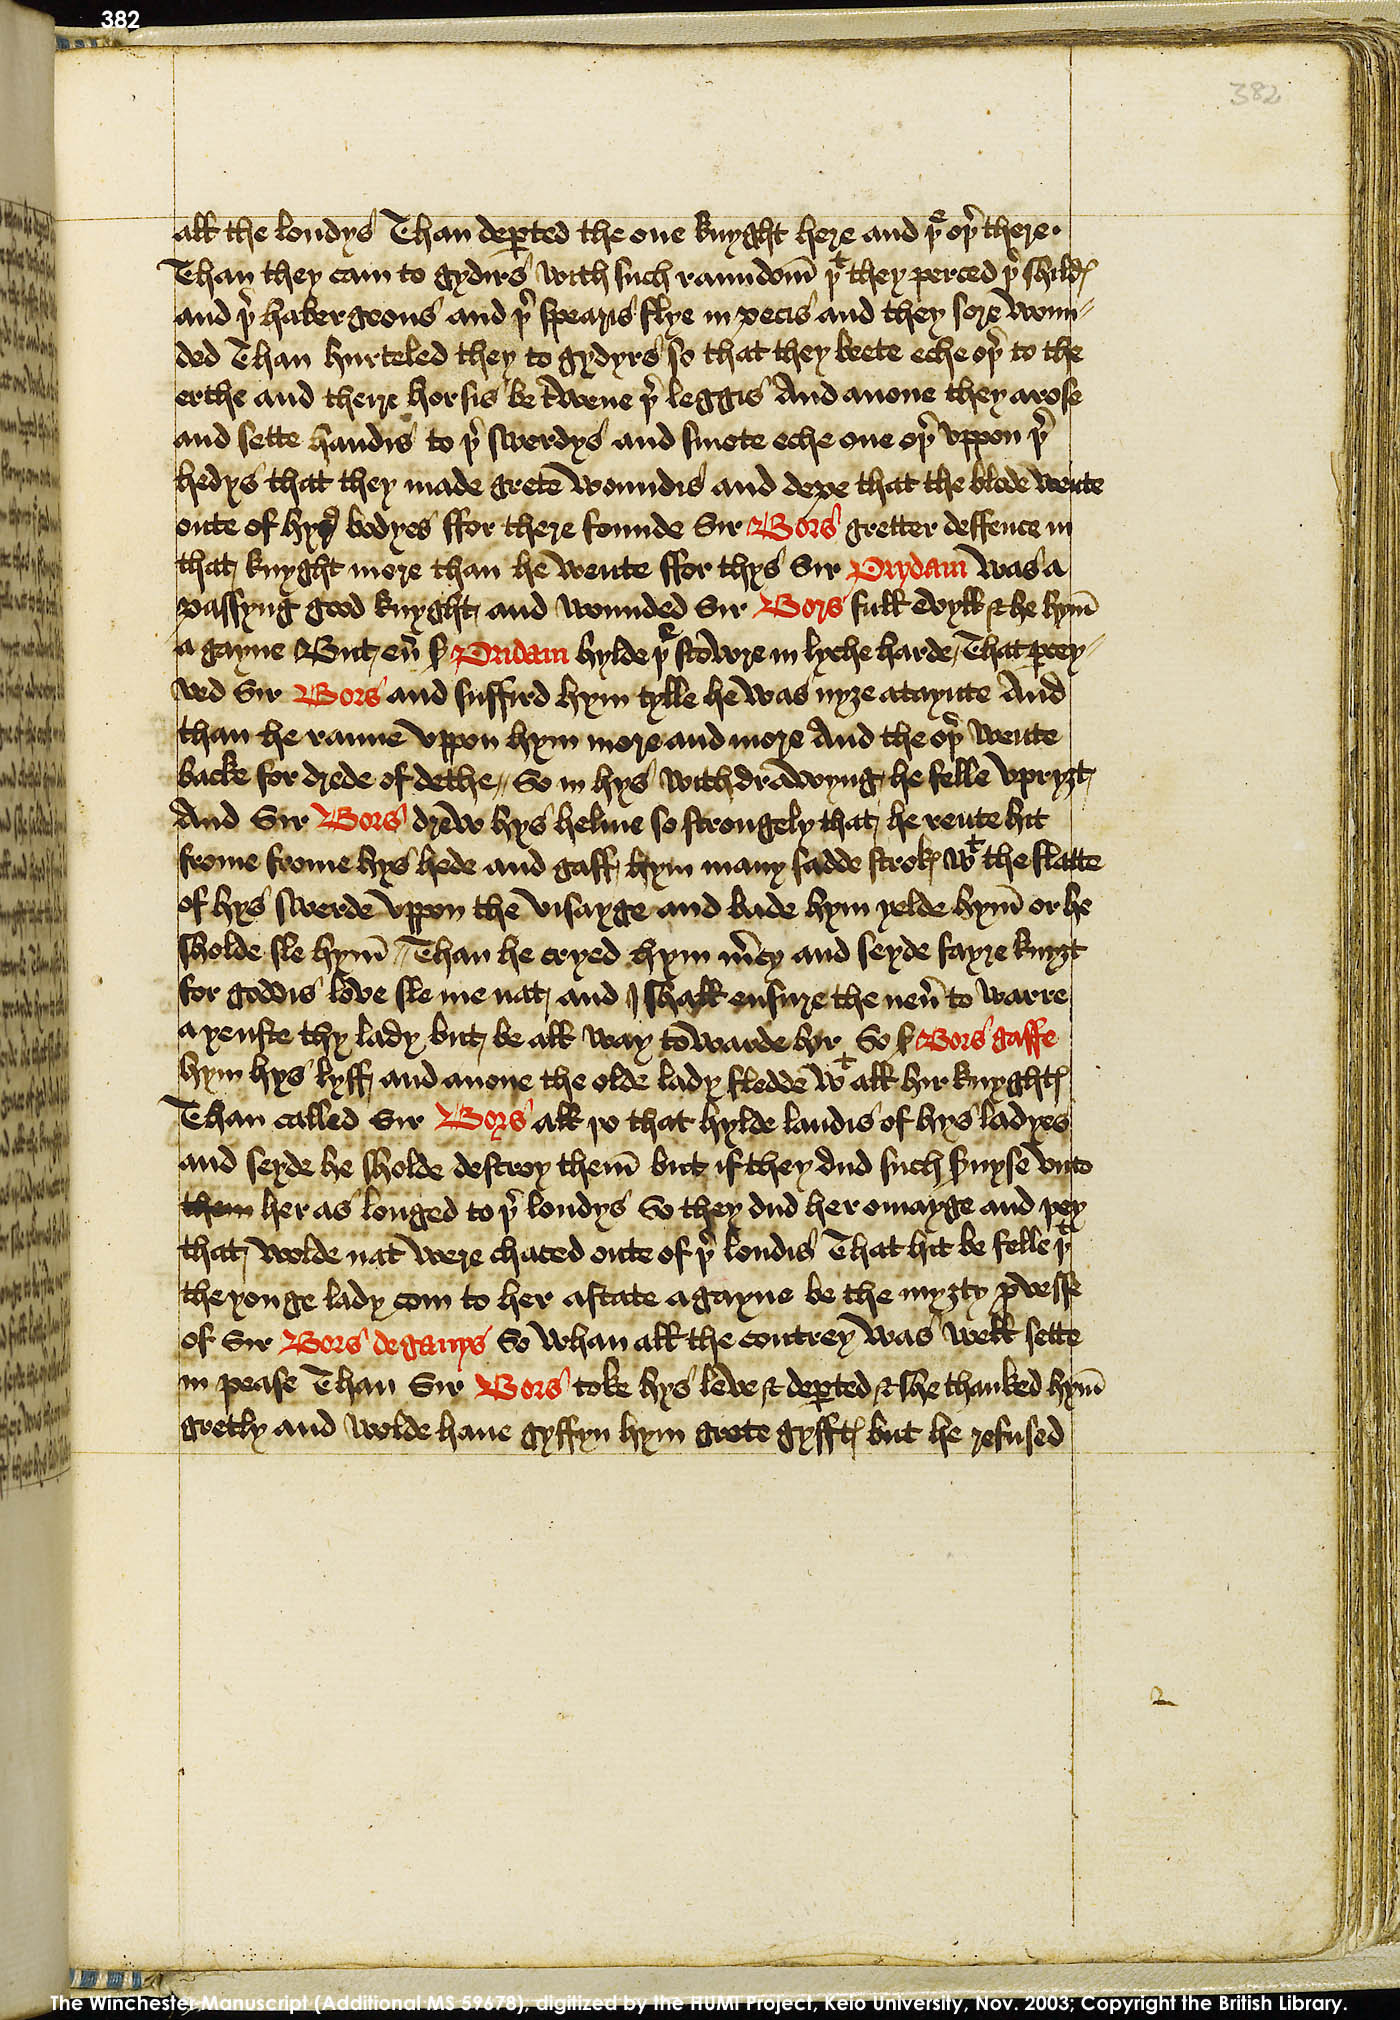 382
382
all the londys Than deꝑted the one knyght here and þᵉ oþ̉ there·
Than they cam to gydirs with such raundom̄ þᵗ they perced þ̉ shildꝭ
and þ̉ habergeons and þ̉ spearis flye in pecis and they sore woun-
ded Than hurteled they to gydyrs so that they beete eche oþ̉ to the
erthe and theire horsis be twene þ̉ leggis And anone they arose
and sette handis to þ̉ swerdys and smote eche one oþ̉ vppon þ̉
hedys that they made grete woundis and depe that the blode wente
oute of hyr bodyes ffor there founde Sir Bors gretter deffence in
that knyght more than he wente ffor thys Sir Prydam was a
passyng good knyght and wounded Sir Bors full evyll & he hym̄
a gayne But eū Ꞩ Pridam hylde þᵉ stowre in lyche harde / That ꝑcey-
ved Sir Bors and suffird hym tylle he was nyȝe ataynte And
than he ranne vppon hym more and more And the oþ̉ wente
backe for drede of dethe // So in hys withdrawyng he felle vpryȝt
And Sir Bors drew hys helme so strongely that he rente hit
frome frome hys hede and gaff hym many sadde strokꝭ wᵗ the flatte
of hys swerde vppon the visayge and bade hym yelde hym̄ or he
sholde sle hym̄ // Than he cryed hym m̉cy and seyde fayre knyȝt
for goddis love sle me nat and I shall ensure the neū to warre
ayenste thy lady but be all way towarde hyr So Ꞩ Bors gaffe
hym hys lyff and anone the olde lady fledde wᵗ all hir knyghtꝭ
Than called Sir Bors all þo that hylde landis of hys ladyes
and seyde he sholde destroy them̄ but if they dud such ẜuyse vnto
them her as longed to þ̉ londys So they dud her omayge and þey
that wolde nat were chaced oute of þ̉ londis That hit be felle þᵗ
the yonge lady com to her astate agayne be the myȝty ꝓwesse
of Sir Bors de ganys So whan all the contrey was well sette
in pease Than Sir Bors toke hys leve & deꝑted & she thanked hym̄
gretly and wolde have gyffyn hym grete gyfftꝭ but he refused
2
The Winchester Manuscript (Additional MS 59678), digitized by the HUMI Project, Keio University, Nov. 2003; Copyright the British Library.